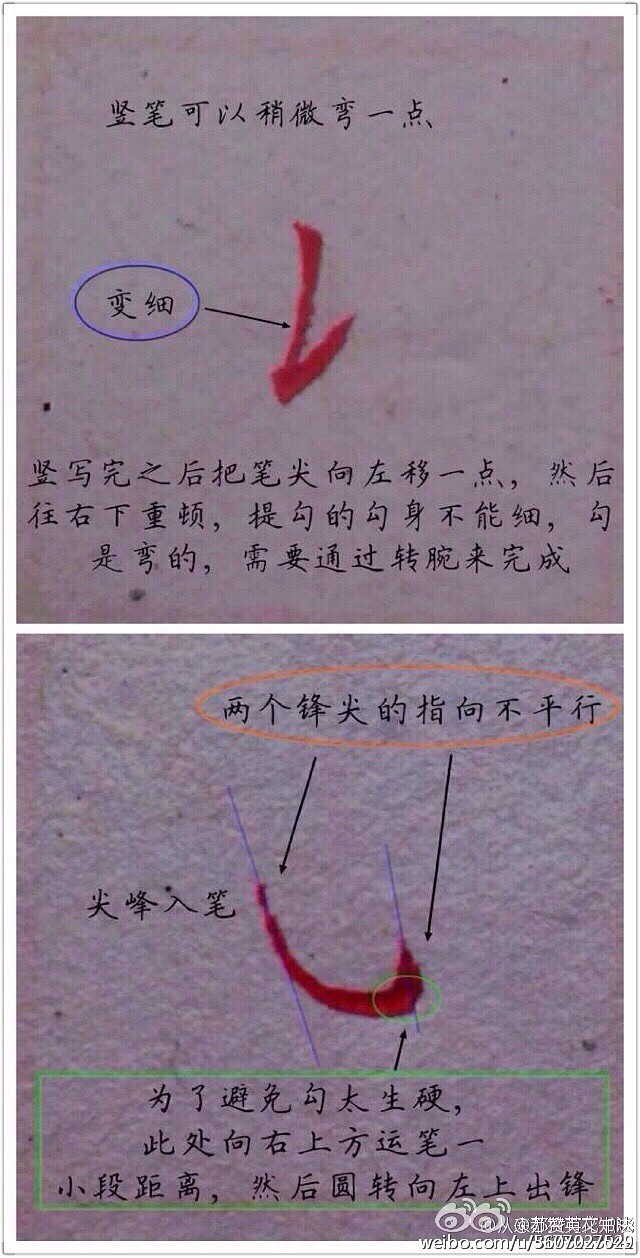 竖笔可以稍微弯一点
变细
竖写完之后把笔尖向左移一点，然后
往右下重顿，提勾的勾身不能细，勾
是弯的，需要通过转腕来完成
两个锋尖的指向不平行
尖峰入笔
为了避免勾太生硬，
此处向右上方运笔一
小段距离，然后圆转向左上出锋